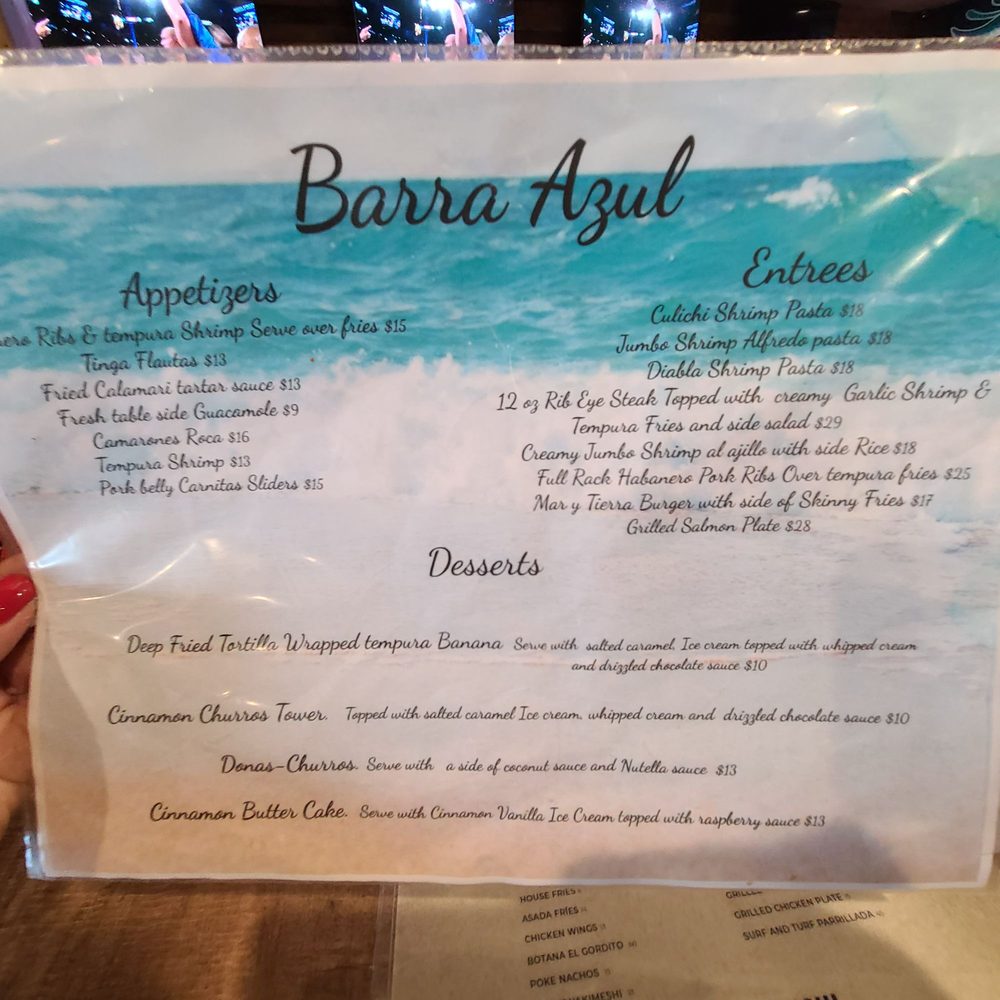 Barra Azul
Appetizers
Ribs & tempura Shrimp Serve over fries $15
Tinga Flautas $13
Fried Calamari tartar sauce $13
Fresh table side Guacamole $9
Camarones Roca $16
Tempura Shrimp $13
Pork belly Carnitas Sliders $15
Entrees
Culichi Shrimp Pasta $18
Jumbo Shrimp Alfredo pasta $18
Diabla Shrimp Pasta $18
12 oz Rib Eye Steak Topped with creamy Garlic Shrimp &
Tempura Fries and side salad $29
Creamy Jumbo Shrimp al ajillo with side Rice $18
Full Rack Habanero Pork Ribs Over tempura fries $25
Mar y Tierra Burger with side of Skinny Fries $17
Grilled Salmon Plate $28
Desserts
Deep Fried Tortilla Wrapped tempura Banana Serve with salted caramel, Ice cream topped with whipped cream
and drizzled chocolate sauce $10
Cinnamon Churros Tower. Topped with salted caramel Ice cream, whipped cream and drizzled chocolate sauce $10
Donas-Churros. Serve with a side of coconut sauce and Nutella sauce $13
Cinnamon Butter Cake. Serve with Cinnamon Vanilla Ice Cream topped with raspberry sauce $13
HOUSE FRIES
ASADA FRIES
CHICKEN WINGS
BOTANA EL GORDITO
POKE NACHOS
GRILLED CHICKEN PLATE
SURF AND TURF PARRILLADA